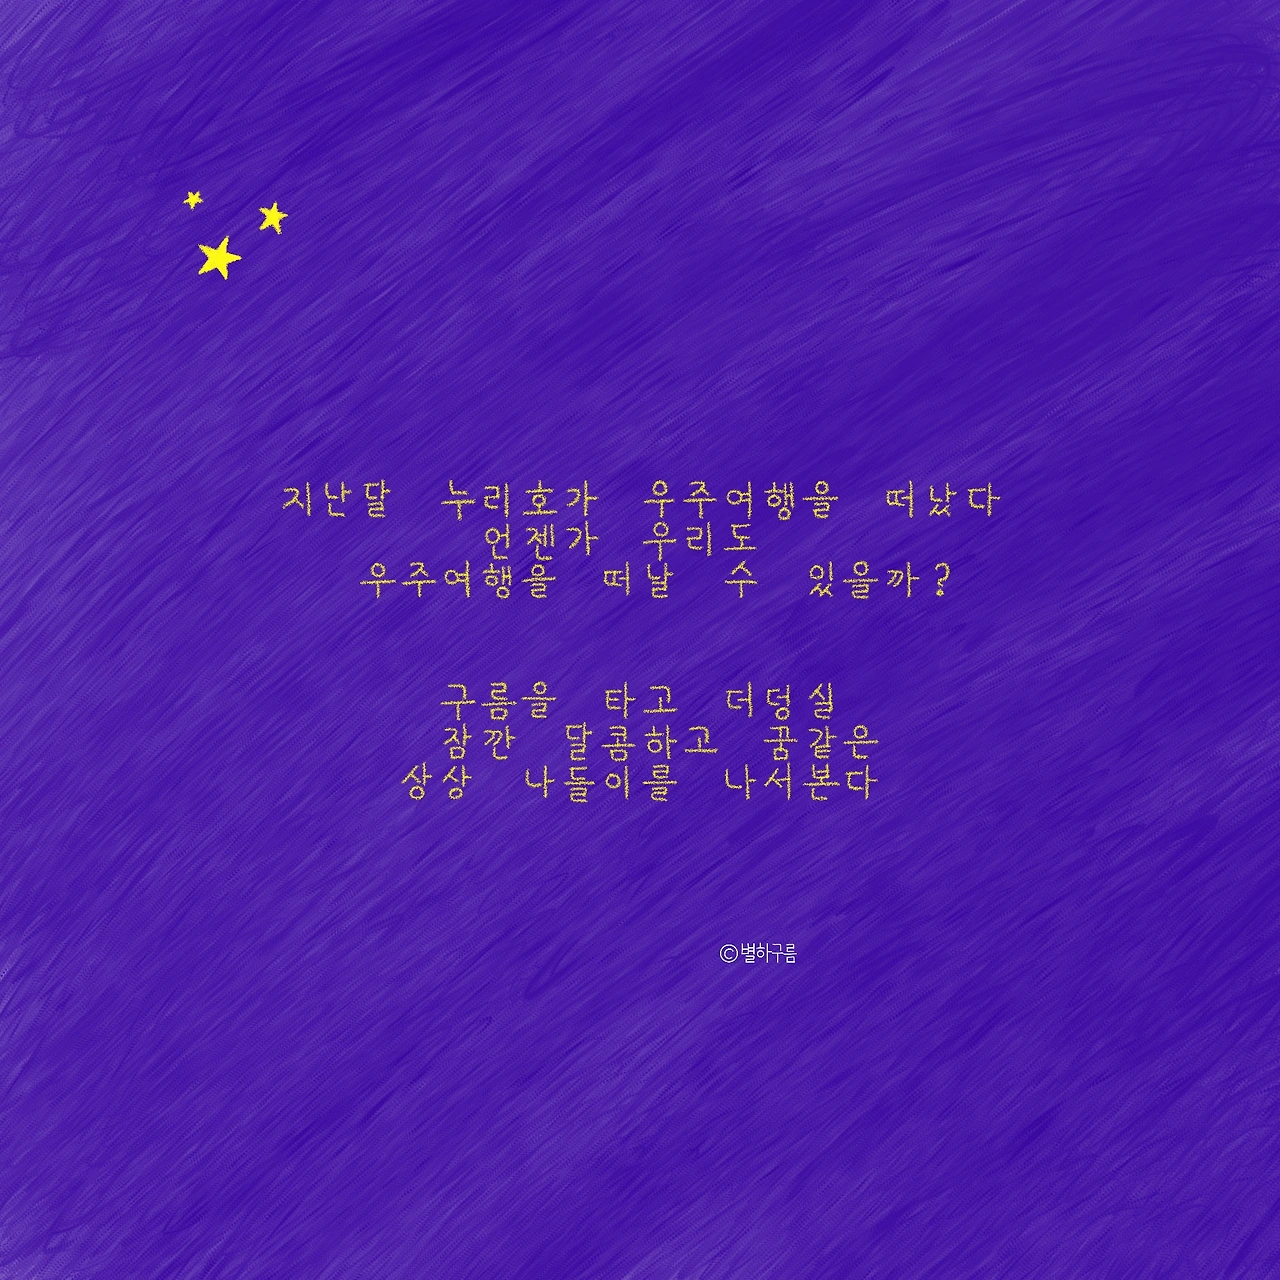 지난달 누리호가 우주여행을 떠났다
언젠가 우리도
우주여행을 떠날 수 있을까?
구름을 타고 더덩실
잠깐 달콤하고 꿈같은
상상 나들이를 나서본다
©별하구름